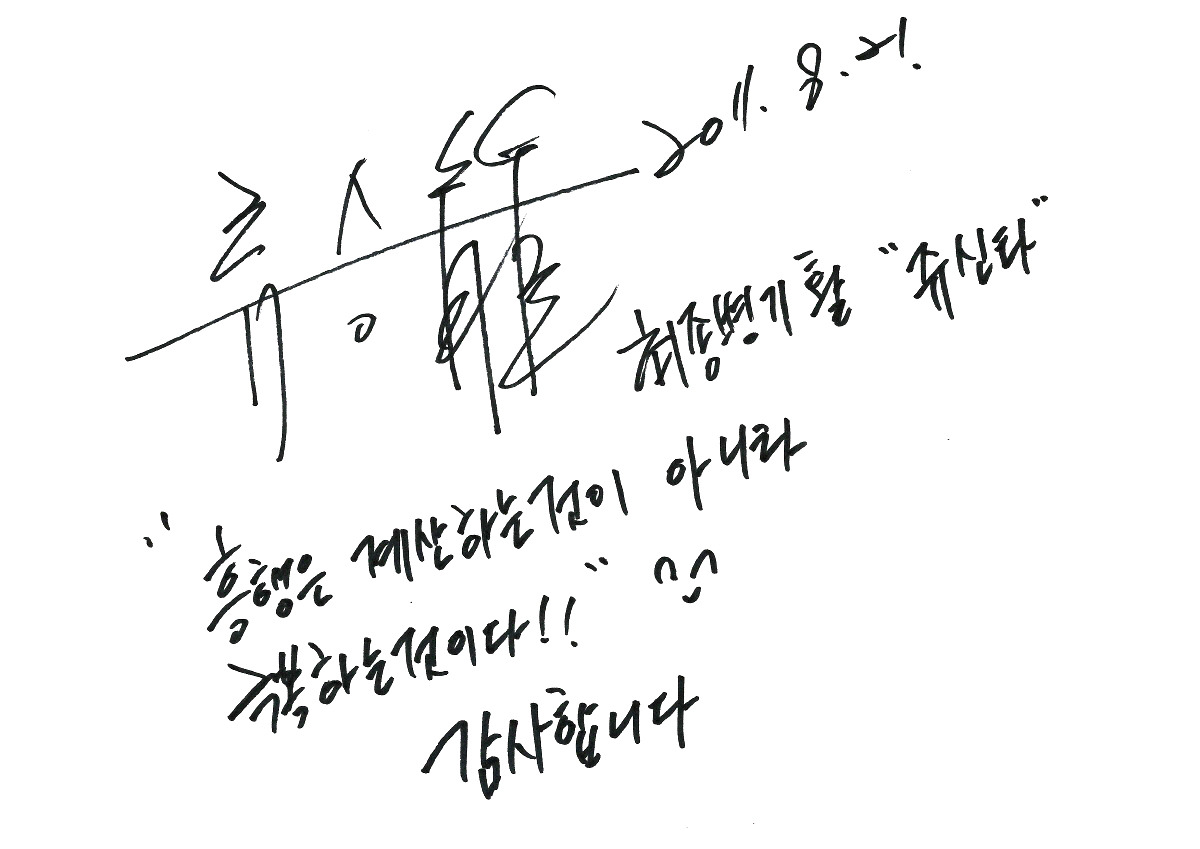 2011. 8. 21.
최종병기 활 "쥬신타"
"흥행은 계산하는것이 아니라
극복하는것이다!!"
감사합니다